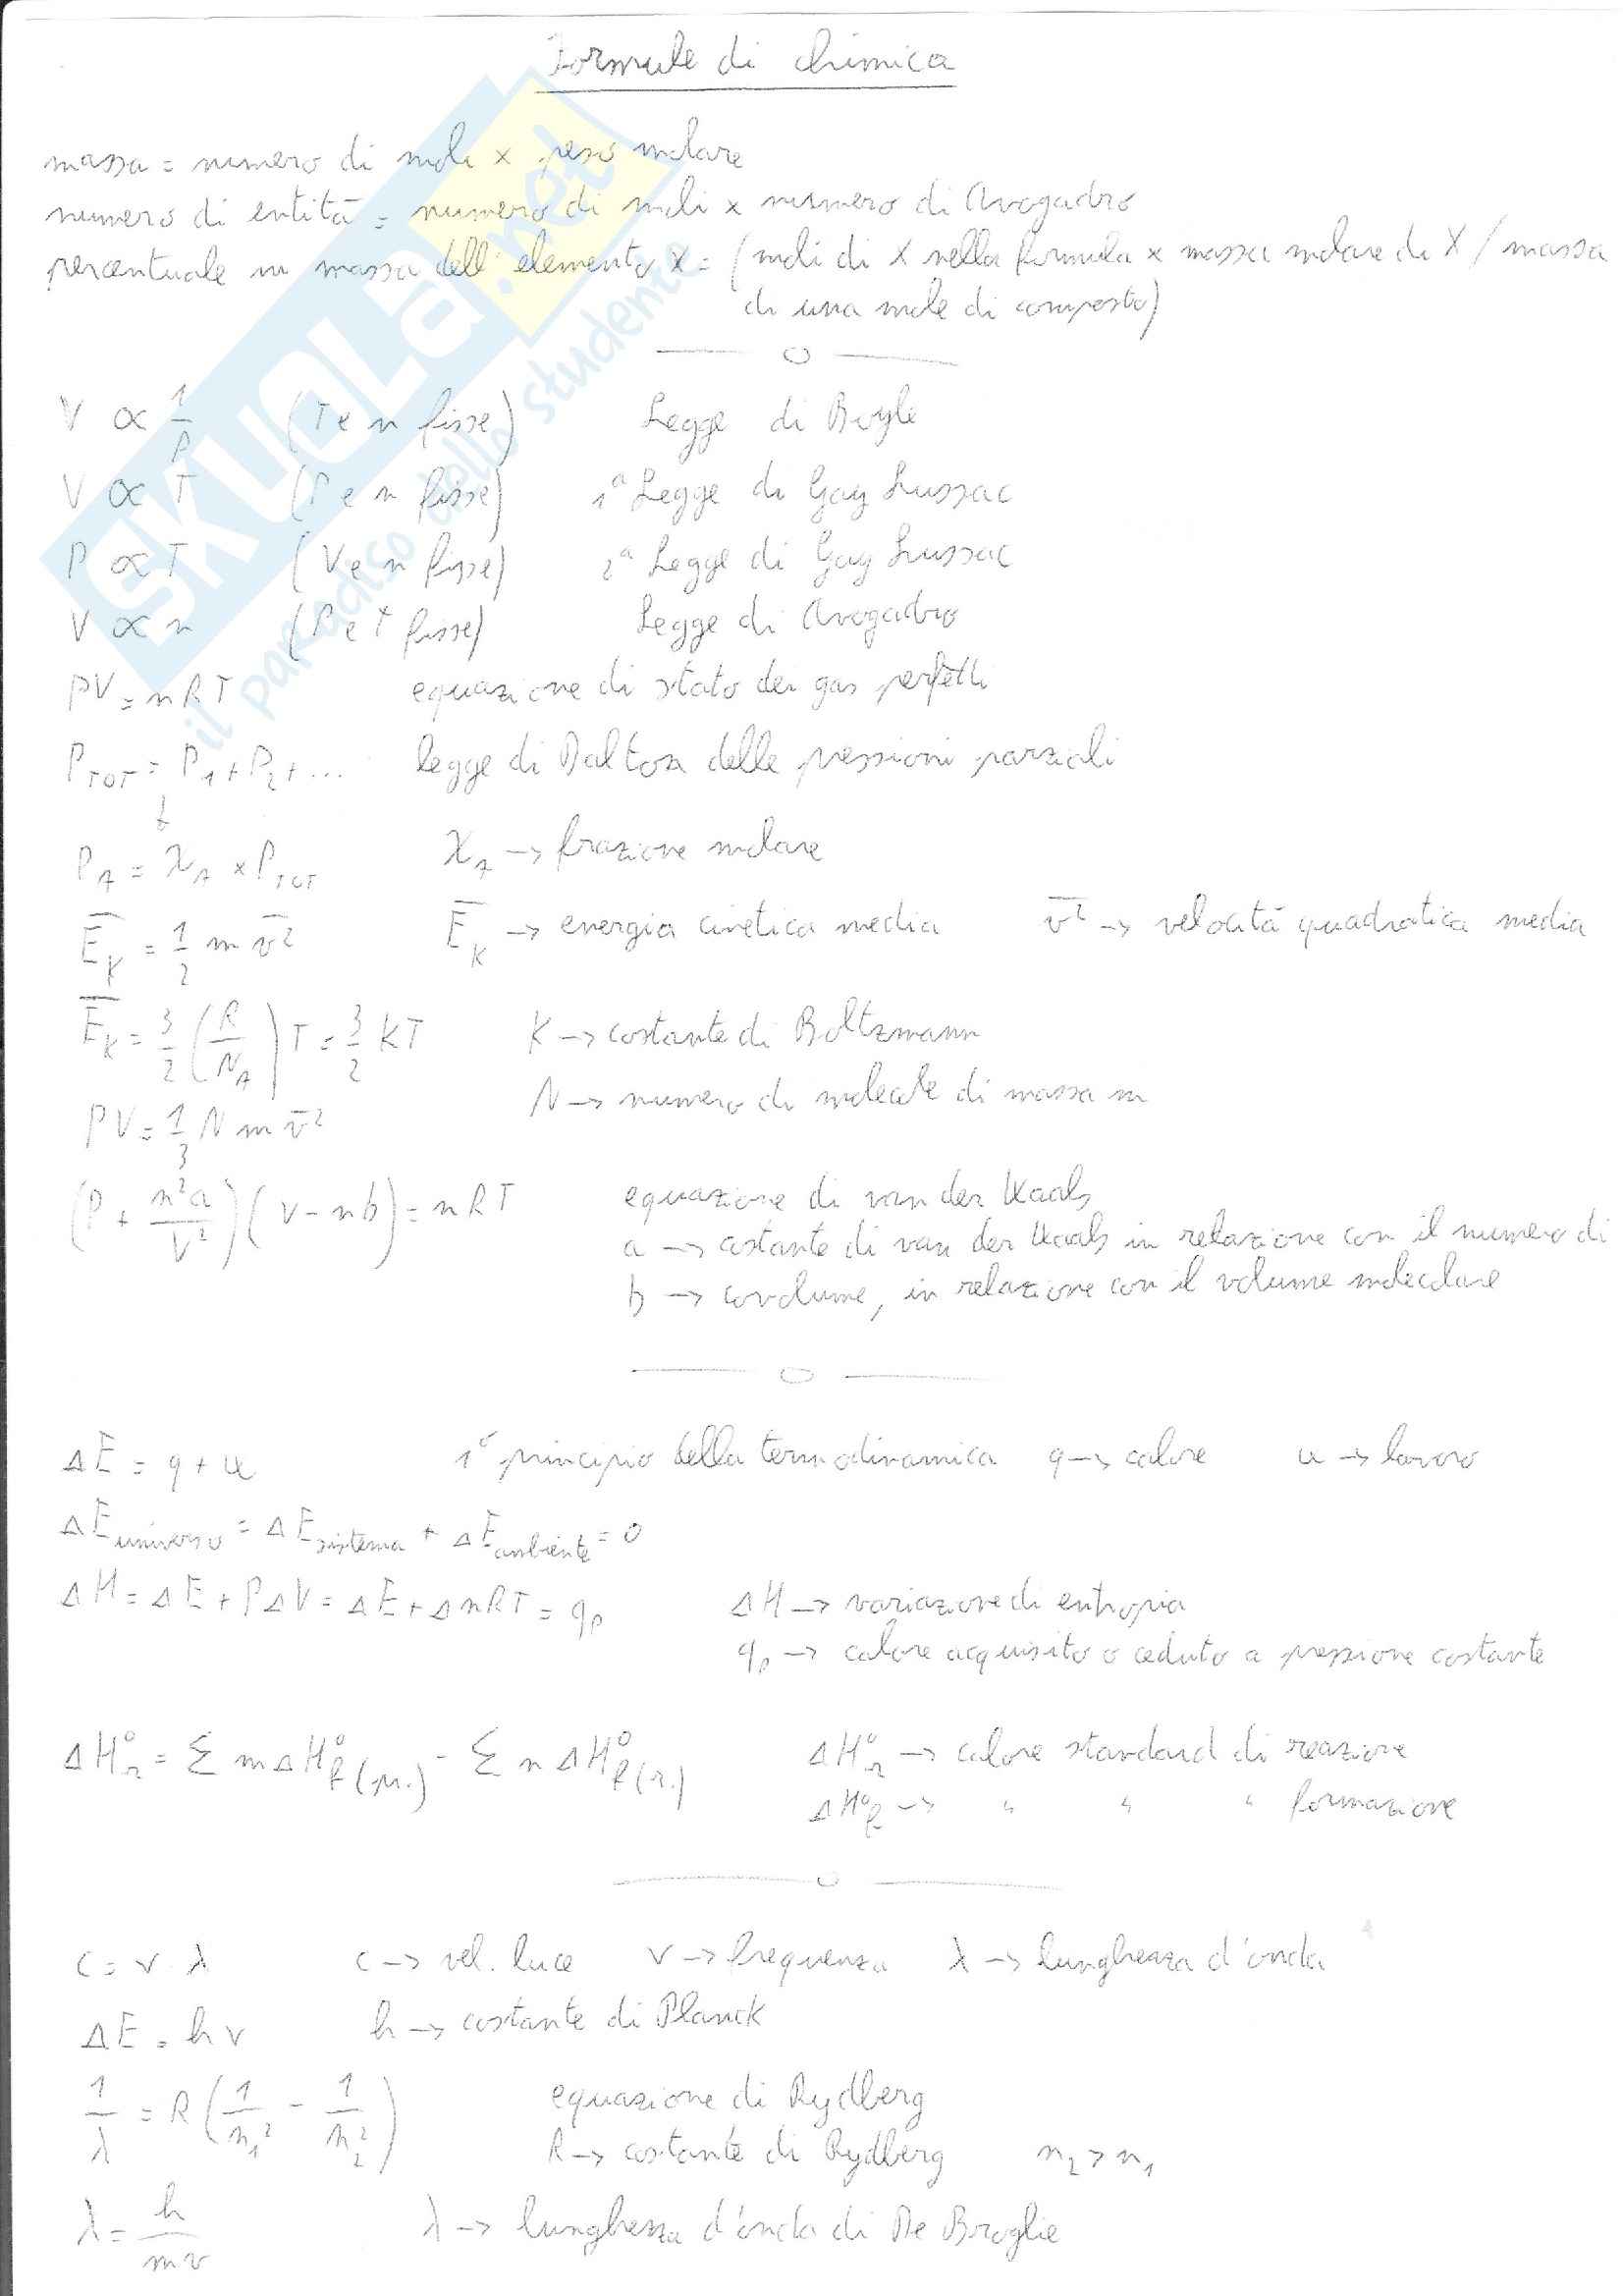 Formule di chimica
massa = numero di moli x peso molare
numero di entità = numero di moli x numero di Avogadro
percentuale in massa dell'elemento X = (moli di X nella formula x massa molare di X / massa
di una mole di composto)
V ∝ 1/P (T e n fisse) Legge di Boyle
V ∝ T (P e n fisse) 1ª Legge di Gay Lussac
P ∝ T (V e n fisse) 2ª Legge di Gay Lussac
V ∝ n (P e T fisse) Legge di Avogadro
PV = nRT equazione di stato dei gas perfetti
P_TOT = P_1 + P_2 + ... legge di Dalton delle pressioni parziali
P_A = χ_A x P_TOT χ_A → frazione molare
E̅_K = 1/2 m v̅² E̅_K → energia cinetica media v̅² → velocità quadratica media
E̅_K = 3/2 (R/N_A) T = 3/2 KT K → costante di Boltzmann
PV = 1/3 N m v̅² N → numero di molecole di massa m
(P + n²a/V²)(V - nb) = nRT equazione di van der Waals
a → costante di van der Waals in relazione con il numero di
b → covolume, in relazione con il volume molecolare
ΔE = q + w 1° principio della termodinamica q → calore w → lavoro
ΔE_universo = ΔE_sistema + ΔE_ambiente = 0
ΔH = ΔE + PΔV = ΔE + ΔnRT = q_p ΔH → variazione di entropia
q_p → calore acquisito o ceduto a pressione costante
ΔH°_r = Σ m ΔH°_f (pr.) - Σ n ΔH°_f (r.) ΔH°_r → calore standard di reazione
ΔH°_f → " " " formazione
c = ν · λ c → vel. luce ν → frequenza λ → lunghezza d'onda
ΔE = hν h → costante di Planck
1/λ = R (1/n_1² - 1/n_2²) equazione di Rydberg
R → costante di Rydberg n_2 > n_1
λ = h/mv λ → lunghezza d'onda di De Broglie
SKUOLA.net
il paradiso dello studente